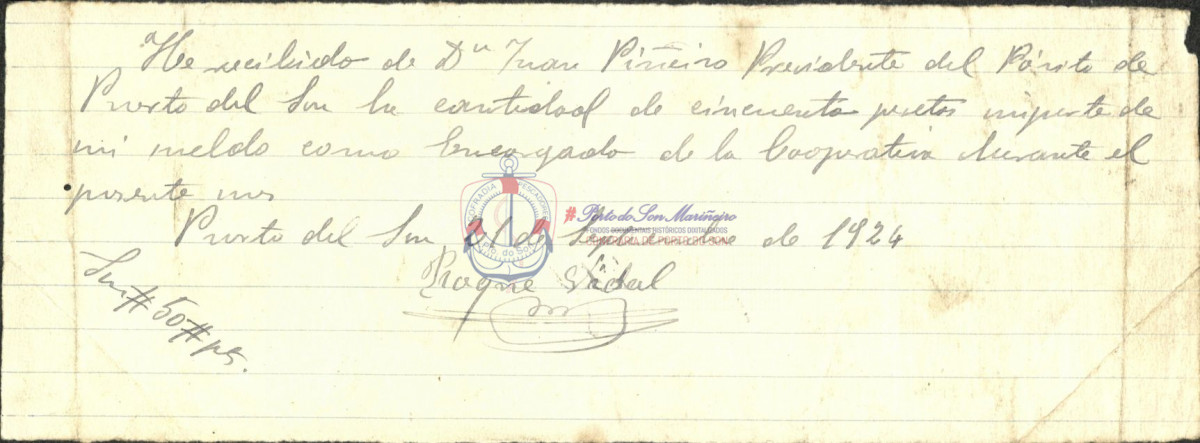 He recibido de Dn Juan Piñeiro Presidente del Pósito de
Puerto del Son la cantidad de cincuenta ptas importe de
mi sueldo como Encargado de la Cooperativa durante el
presente mes
Puerto del Son de de 1924
Roque Vidal
Son # 50 # pts.
COFRADIA PESCADORES
Pto. do Son
#PortodoSon Mariñeiro
FONDOS DOCUMENTAIS HISTÓRICOS DIXITALIZADOS
COFRADIA DE PORTO DO SON